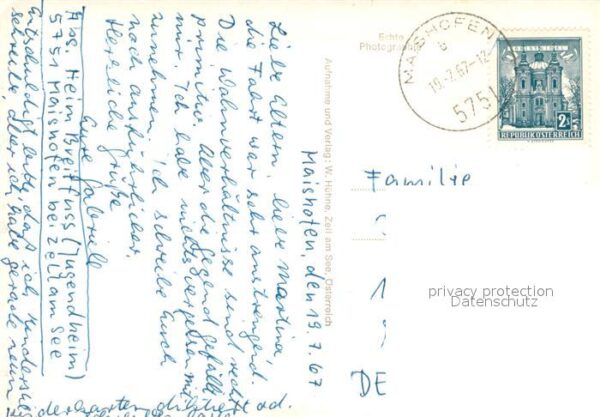 Maishofen, den 19.7.67
Liebe Eltern, liebe Martina,
die Fahrt war sehr anstrengend.
Die Wohnverhältnisse sind recht
primitiv. Aber die Gegend gefällt
mir. Ich habe nichts vergessen mit
zunehmen. Ich schreibe Euch
noch ausführlicher.
Herzliche Grüße
Eure Gabriele
Abs. Heim Breitfuss (Jugendheim)
5751 Maishofen bei Zell am See
Entschuldigt bitte, daß ich
schreibe, aber ich habe gerade
Echte
Photographie
Aufnahme und Verlag: W. Höhne, Zell am See, Österreich
MAISHOFEN
b
19.-7.67-12
5751
2S
REPUBLIK ÖSTERREICH
Familie
DE
privacy protection
Datenschutz